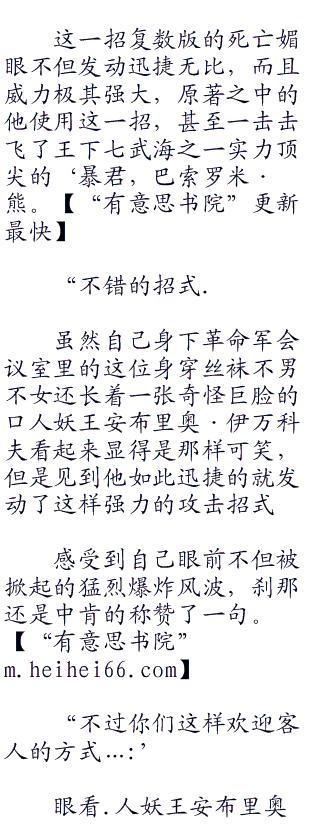 这一招复数版的死亡媚
眼不但发动迅捷无比，而且
威力极其强大，原著之中的
他使用这一招，甚至一击击
飞了王下七武海之一实力顶
尖的‘暴君，巴索罗米·
熊。【“有意思书院”更新
最快】
“不错的招式.
虽然自己身下革命军会
议室里的这位身穿丝袜不男
不女还长着一张奇怪巨脸的
口人妖王安布里奥·伊万科
夫看起来显得是那样可笑，
但是见到他如此迅捷的就发
动了这样强力的攻击招式
感受到自己眼前不但被
掀起的猛烈爆炸风波，刹那
还是中肯的称赞了一句。
【“有意思书院”
m.heihei66.com】
“不过你们这样欢迎客
人的方式…:’
眼看.人妖王安布里奥